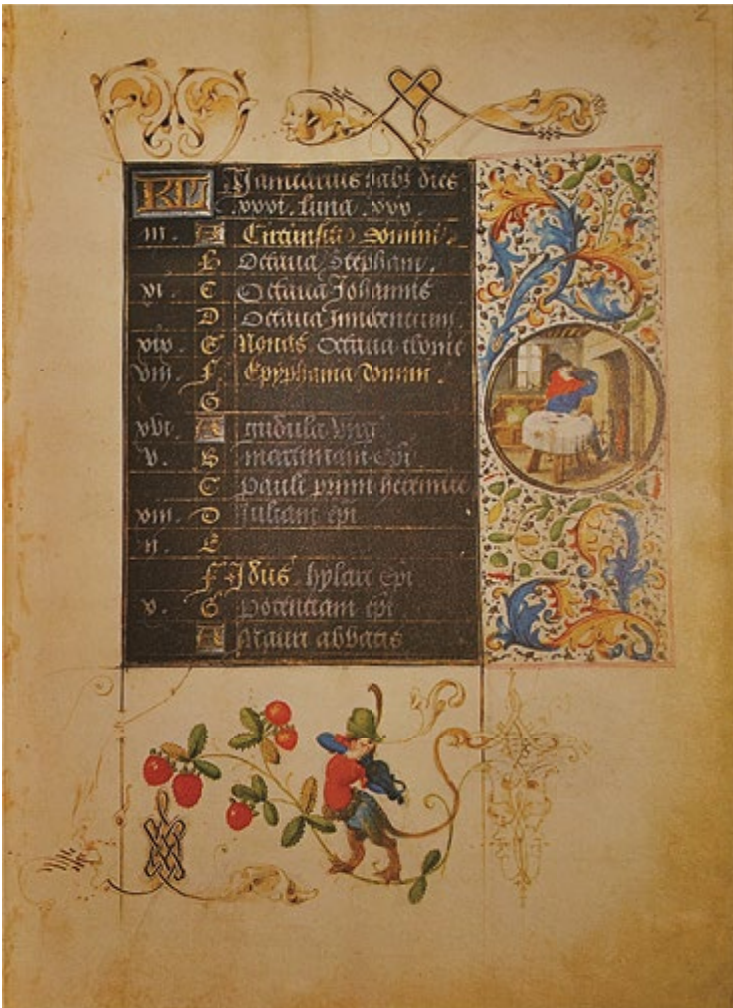 2
KL Januarius habt dies
xxxi. luna. xxx.
iii. A Circuncisio domini.
B Octaua Stephani.
xi. C Octaua Johannis
D Octaua innocentium
xix. E Nonas. Octaua thome
viii. F Epyphania domini.
G
xvi. A gudula virg
v. B
C Pauli primi heremite
xiii. D Juliani epi
ii. E
F Idus. hylari epi
x. G epi
A Mauri abbatis